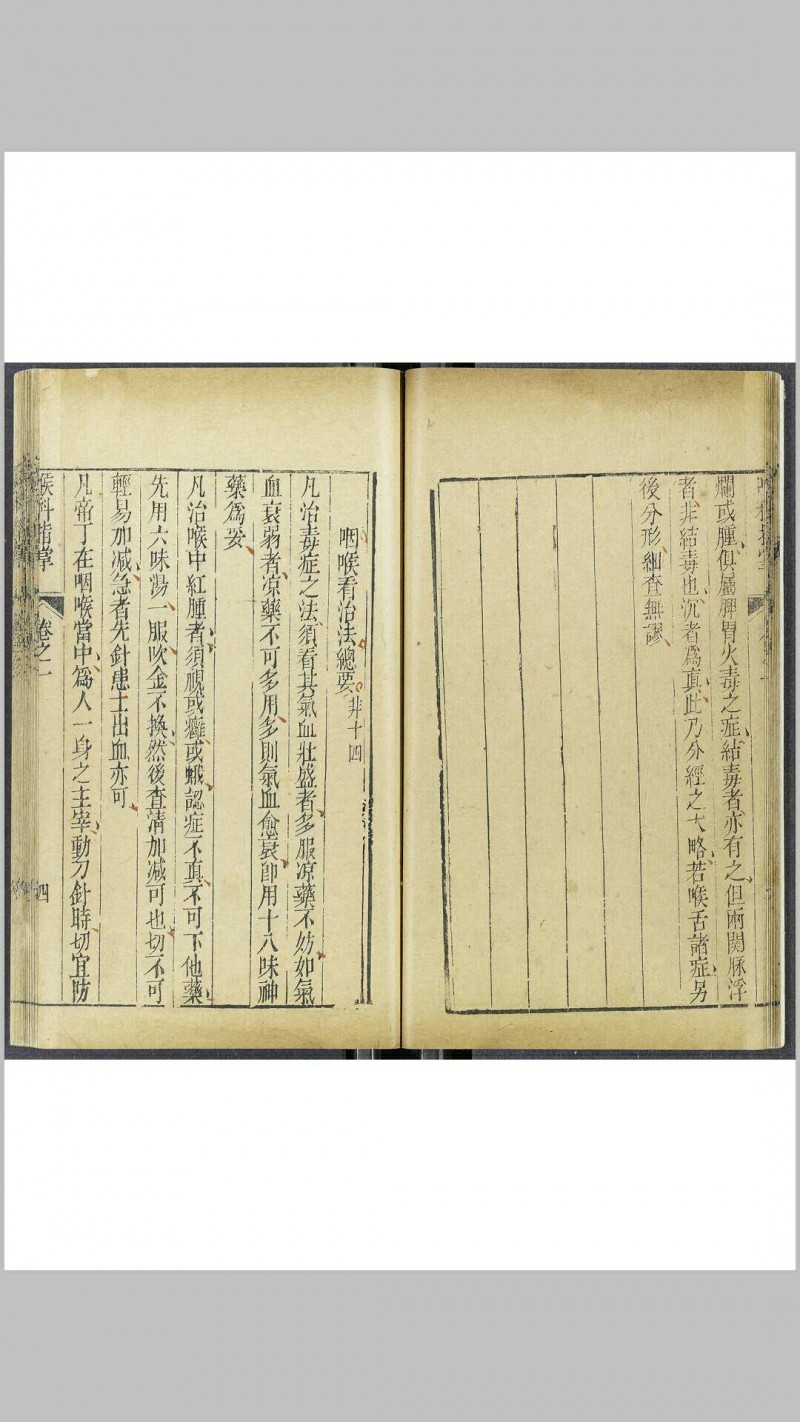 爛或腫俱屬脾胃火毒之症結毒者亦有之但兩関脉浮
者非結毒也沉者爲真此乃分經之大略若喉舌諸症另
後分形細查無謬
咽喉看治法總要 共十四
凡治毒症之法須看其氣血壯盛者多服凉藥不妨如氣
血衰弱者凉藥不可多用多則氣血愈衰卽用十八味神
藥爲妥
凡治喉中紅腫者須視或癰或蛾認症不真不可下他藥
先用六味湯一服吹金不換然後查清加减可也切不可
輕易加减急者先針患上出血亦可
凡帝丁在咽喉當中爲人一身之主宰動刀針時切宜防
喉科指掌 卷之一 四